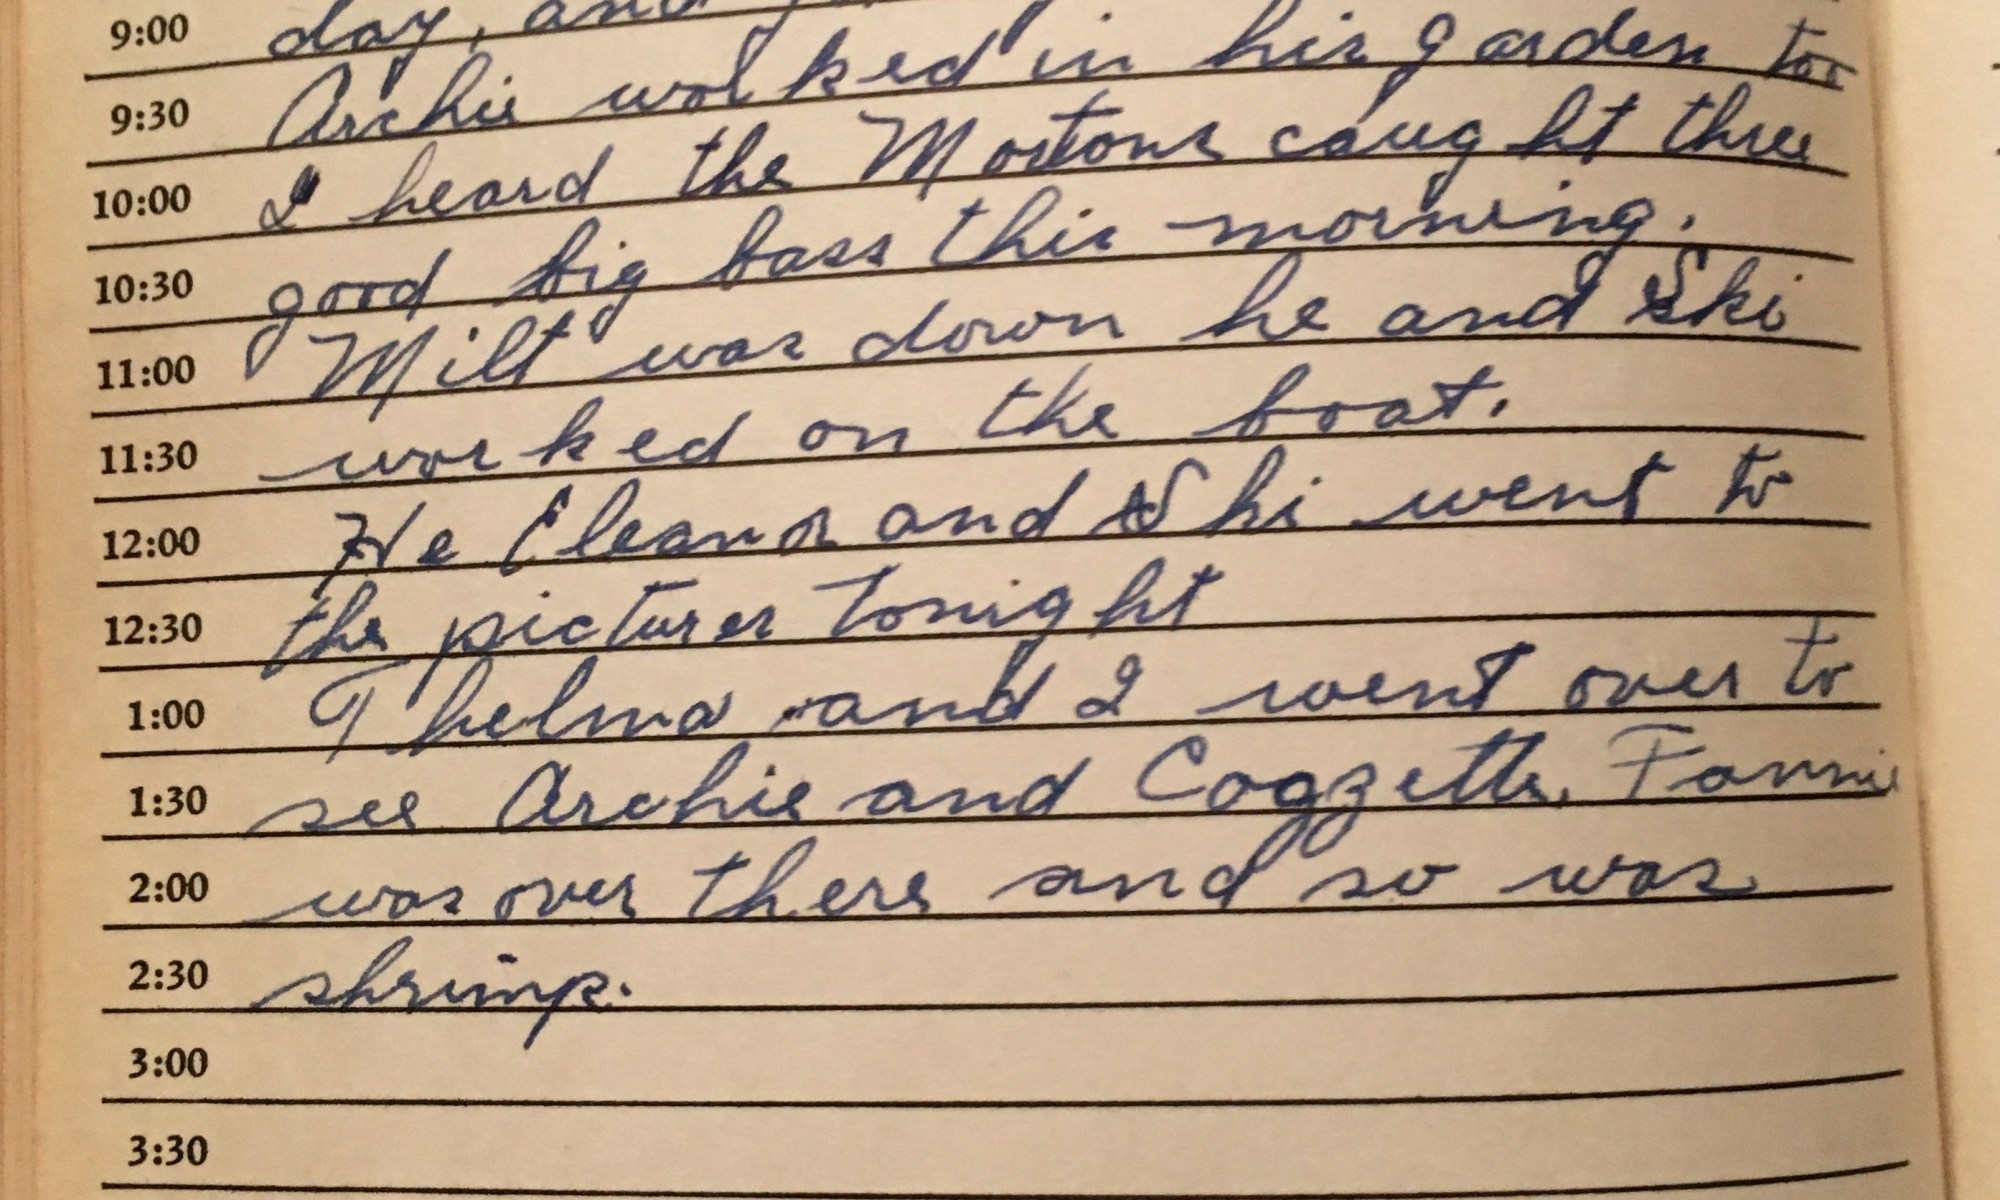 9:00 day, and
9:30 Archie worked in his garden too
10:00 I heard the Mortons caught three
10:30 good big bass this morning.
11:00 Milt was down he and Ski
11:30 worked on the boat.
12:00 He Eleanor and Ski went to
12:30 the pictures tonight
1:00 Thelma and I went over to
1:30 see Archie and Cogzette. Fannie
2:00 was over there and so was
2:30 shrimp.
3:00
3:30